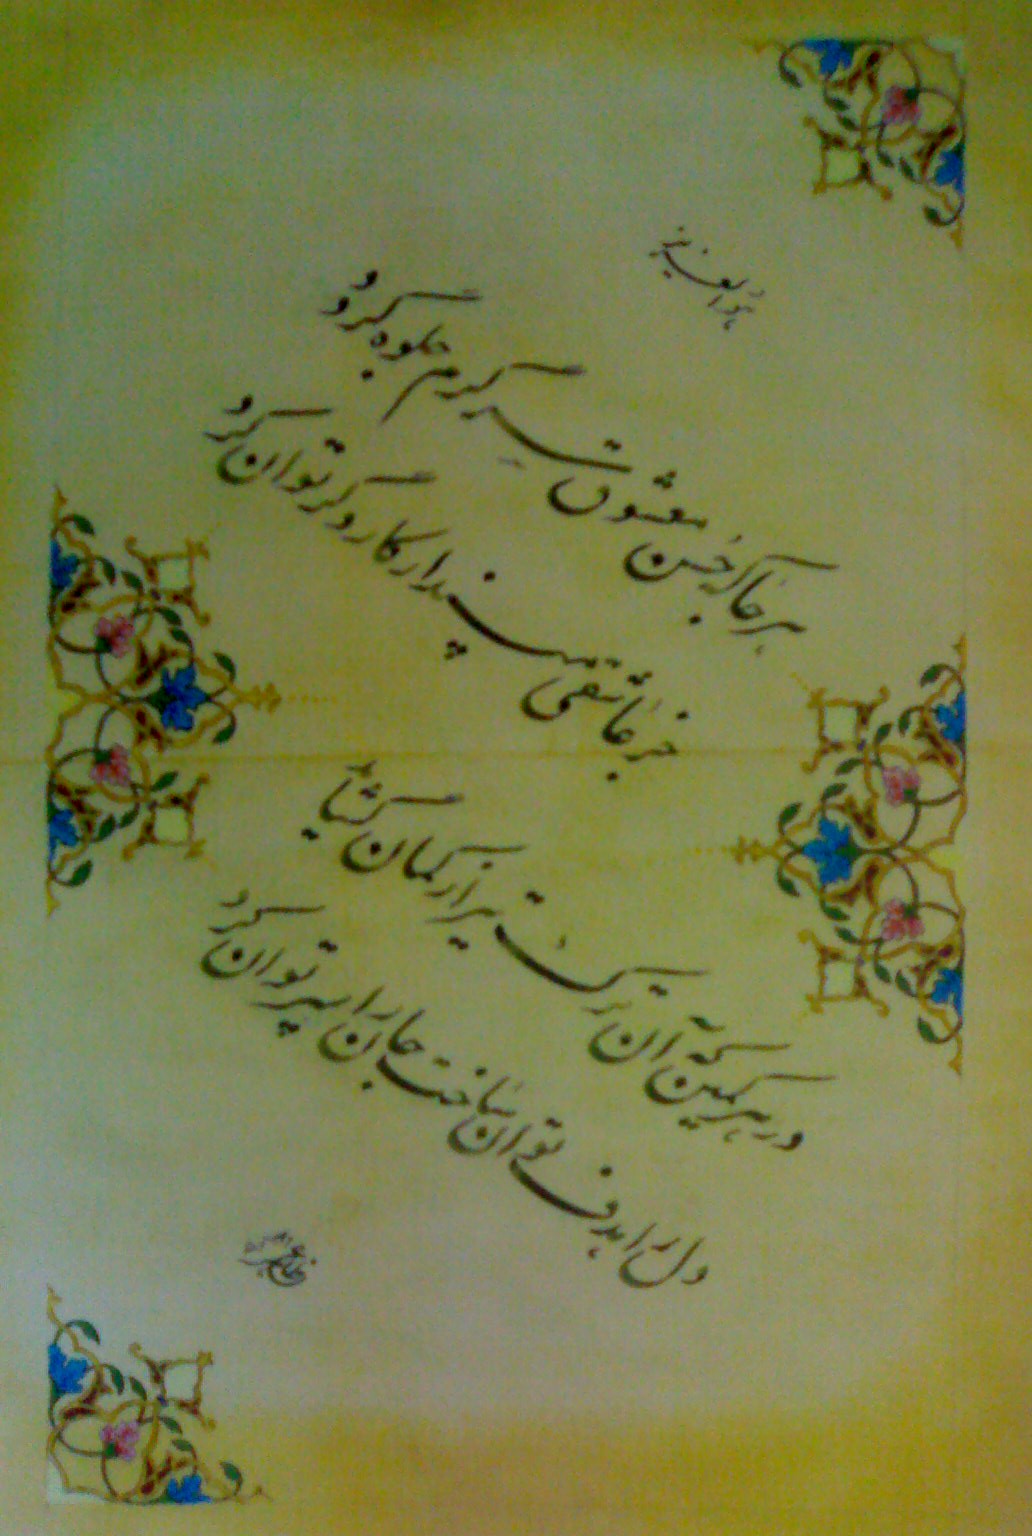 هوالعزیز
هر جا که حسن معشوق سر گرم جلوه گردد
جز عاشقی مپندار کار دگر توان کرد
در هر کمین که آن ترک شست تیر از کمان گشاید
دل را هدف توان ساخت جان را سپر توان کرد